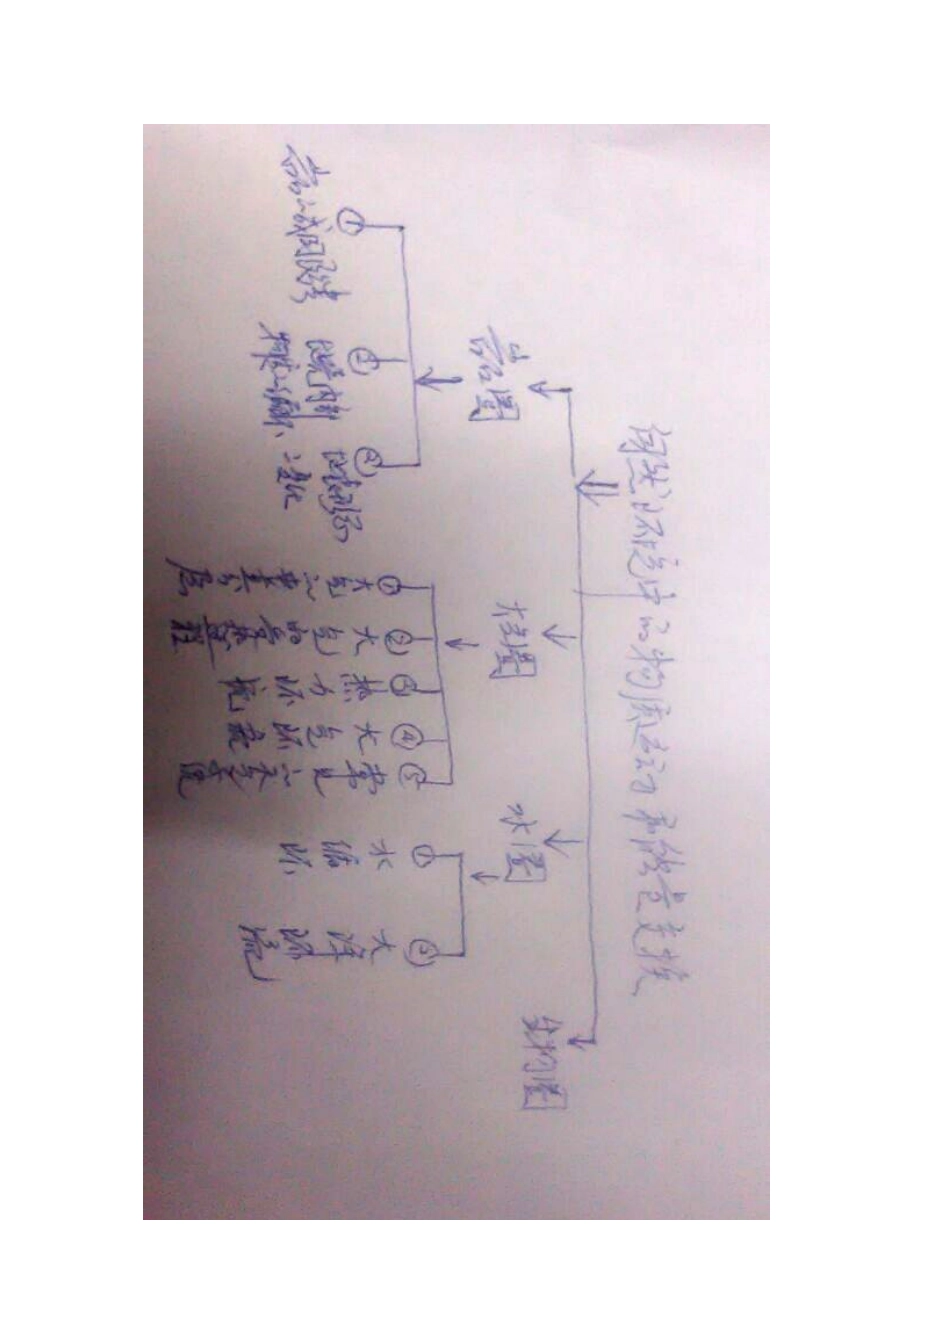 自然环境中的物质运动和能量交换
岩石圈
大气圈
水圈
生物圈
① 岩石成因
② 地壳内部物质
③ 地表形态之变化
① 大气的垂直分层
② 大气的受热过程
③ 热力环流
④ 大气环流
⑤ 常见的天气
① 水循环
② 大洋环流